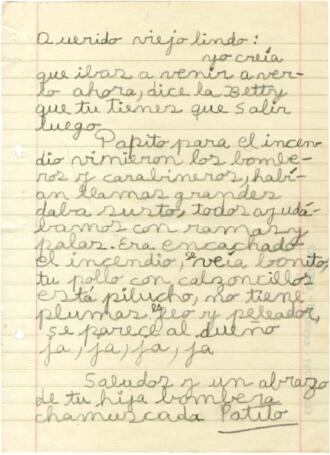 Querido viejo lindo:
yo creía
que ibas a venir a ver-
lo ahora, dice la Betty
que tu tienes que salir
luego.
Papito para el incen-
dio vinieron los bombe-
ros y carabineros, habí-
an llamas grandes
daba susto, todos ayudá-
bamos con ramas y
palas. Era encachado
el incendio, se veía bonito,
tu pollo con calzoncillos
está pilucho, no tiene
plumas es feo y peleador,
se parece al dueño
ja, ja, ja, ja
Saludos y un abrazo
de tu hija bombera
chamuscada Patito